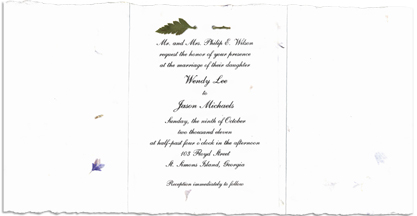 Mr. and Mrs. Philip E. Wilson
request the honor of your presence
at the marriage of their daughter
Wendy Lee
to
Jason Michaels
Sunday, the ninth of October
two thousand eleven
at half-past four o'clock in the afternoon
103 Floyd Street
St. Simons Island, Georgia
Reception immediately to follow